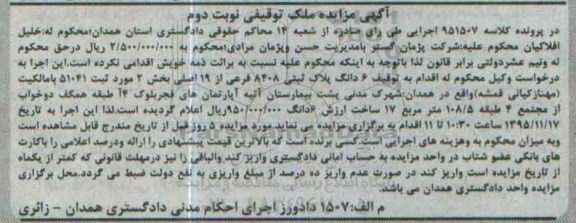 آگهی مزایده ملک توقیفی نوبت دوم
در پرونده کلاسه ۹۵۱۵۰۷ اجرایی طی رای صادره از شعبه ۱۴ محاکم حقوقی دادگستری استان همدان؛محکوم له:خلیل
افلاکیان محکوم علیه:شرکت پژمان گستر بامدیریت حسن ویژمان مرادی؛محکوم به ۲/۵۰۰/۰۰۰/۰۰۰ ریال درحق محکوم
له ونیم عشردولتی برابر قانون لذا باتوجه به اینکه محکوم علیه نسبت به برائت ذمه خویش اقدامی نکرده است.این اجرا به
درخواست وکیل محکوم له اقدام به توقیف ۶ دانگ پلاک ثبتی ۸۴۰۸ فرعی از ۱۹ اصلی بخش ۲ مورد ثبت ۵۱۰۴۱ بامالکیت
(مهنازکیانی قمشه)واقع در همدان-شهرک مدنی پشت بیمارستان آتیه آپارتمان های فجربلوک ۴آ طبقه همکف دوخواب
از مجتمع ۴ طبقه ۱۰۸/۵ متر مربع ۱۷ ساخت ارزش ۶دانگ ۹۵۰/۰۰۰/۰۰۰ریال اعلام گردیده است.لذا این اجرا به تاریخ
۱۳۹۵/۱۱/۱۷ ساعت ۱۰:۳۰ تا ۱۱ اقدام به برگزاری مزایده می نماید.مورد مزایده ۵ روز قبل از تاریخ مندرج قابل مشاهده است
وبه میزان محکوم به وهزینه های اجرایی است.کسی برنده است که بالاترین قیمت پیشنهادی را ارائه ودرصد اعلامی را باکارت
های بانکی عضو شتاب در واحد مزایده به حساب امانی دادگستری واریز کند والباقی را نیز درمهلت قانونی که کمتر از یکماه
از تاریخ مزایده است واریز کند در صورت عدم واریز ده درصد از مبلغ واریزی به نفع دولت ضبط می گردد.محل برگزاری
مزایده واحد دادگستری همدان می باشد.
م الف:۱۵۰۷ دادورز اجرای احکام مدنی دادگستری همدان - زائری